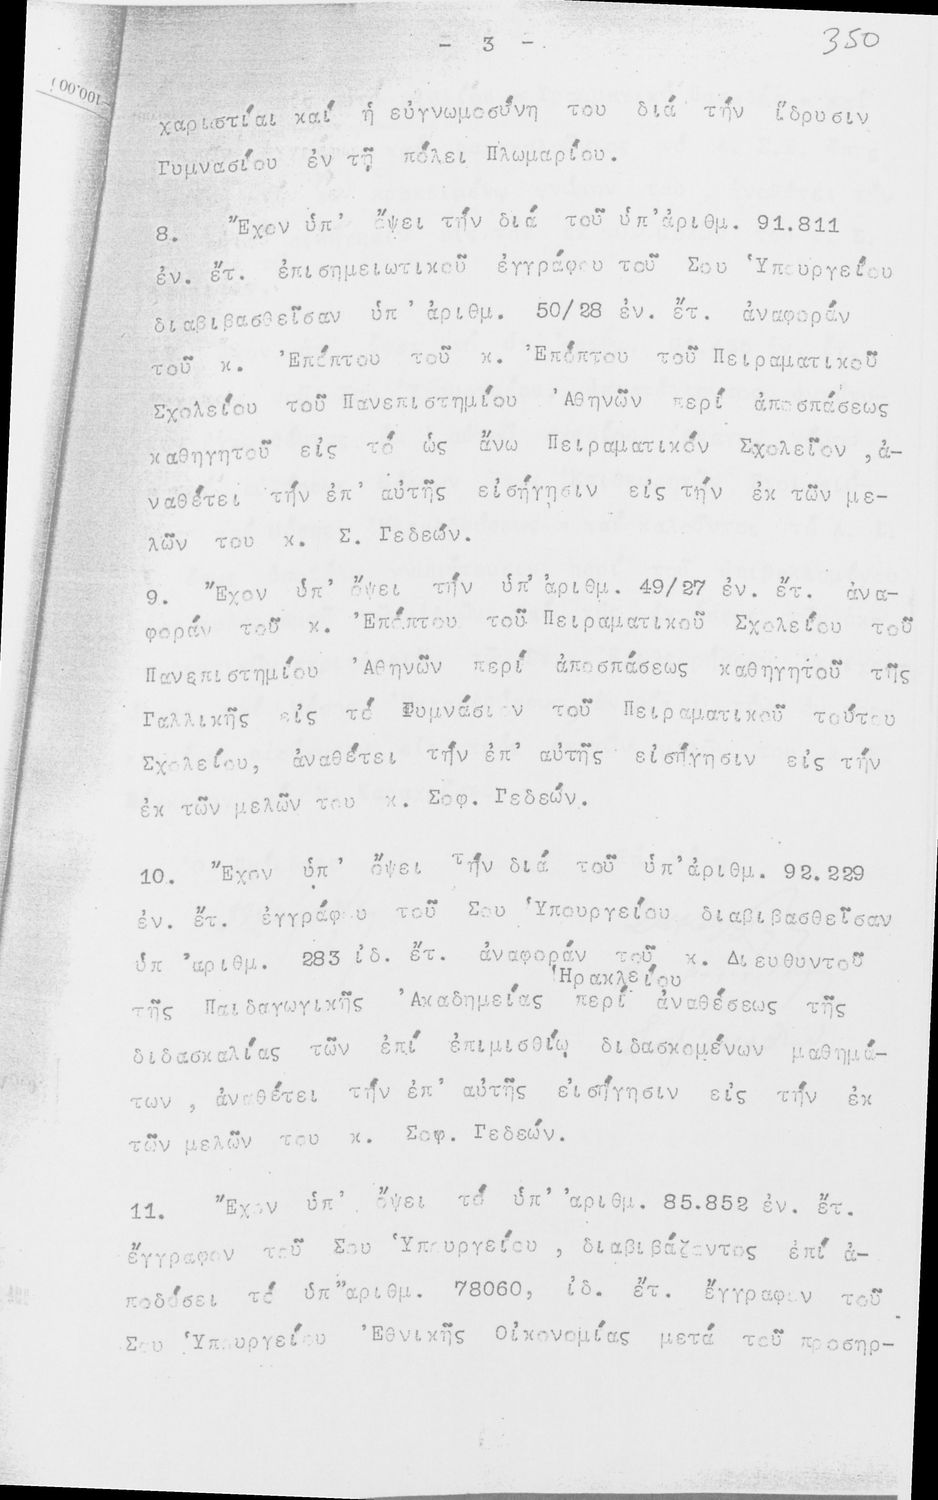 - 3 -
350
100.00)
χαριστίαι καί ἡ εὐγνωμοσύνη του διά τήν ἵδρυσιν
Γυμνασίου ἐν τῇ πόλει Πλωμαρίου.
8. Ἔχον ὑπ' ὄψει τήν διά τοῦ ὑπ'ἀριθμ. 91.811
ἐν. ἔτ. ἐπισημειωτικοῦ ἐγγράφου τοῦ Σου Ὑπουργείου
διαβιβασθεῖσαν ὑπ' ἀριθμ. 50/28 ἐν. ἔτ. ἀναφοράν
τοῦ κ. Ἐπόπτου τοῦ κ. Ἐπόπτου τοῦ Πειραματικοῦ
Σχολείου τοῦ Πανεπιστημίου Ἀθηνῶν περί ἀποσπάσεως
καθηγητοῦ εἰς τό ὡς ἄνω Πειραματικόν Σχολεῖον , ἀ-
ναθέτει τήν ἐπ' αὐτῆς εἰσήγησιν εἰς τήν ἐκ τῶν με-
λῶν του κ. Σ. Γεδεών.
9. Ἔχον ὑπ' ὄψει τήν ὑπ'ἀριθμ. 49/27 ἐν. ἔτ. ἀνα-
φοράν τοῦ κ. Ἐπόπτου τοῦ Πειραματικοῦ Σχολείου τοῦ
Πανεπιστημίου Ἀθηνῶν περί ἀποσπάσεως καθηγητοῦ τῆς
Γαλλικῆς εἰς τό Γυμνάσιον τοῦ Πειραματικοῦ τούτου
Σχολείου, ἀναθέτει τήν ἐπ' αὐτῆς εἰσήγησιν εἰς τήν
ἐκ τῶν μελῶν του κ. Σοφ. Γεδεών.
10. Ἔχον ὑπ' ὄψει τήν διά τοῦ ὑπ'ἀριθμ. 92.229
ἐν. ἔτ. ἐγγράφου τοῦ Σου Ὑπουργείου διαβιβασθεῖσαν
ὑπ 'αριθμ. 283 ἰδ. ἔτ. ἀναφοράν τοῦ κ. Διευθυντοῦ
Ἡρακλείου
τῆς Παιδαγωγικῆς Ἀκαδημείας περί ἀναθέσεως τῆς
διδασκαλίας τῶν ἐπί ἐπιμισθίῳ διδασκομένων μαθημά-
των , ἀναθέτει τήν ἐπ' αὐτῆς εἰσήγησιν εἰς τήν ἐκ
τῶν μελῶν του κ. Σοφ. Γεδεών.
11. Ἔχον ὑπ' ὄψει τό ὑπ' 'αριθμ. 85.852 ἐν. ἔτ.
ἔγγραφον τοῦ Σου Ὑπουργείου , διαβιβάζοντος ἐπί ἀ-
ποδόσει τό ὑπ"αριθμ. 78060, ἰδ. ἔτ. ἔγγραφον τοῦ
Σου Ὑπουργείου Ἐθνικῆς Οἰκονομίας μετά τοῦ προσηρ-